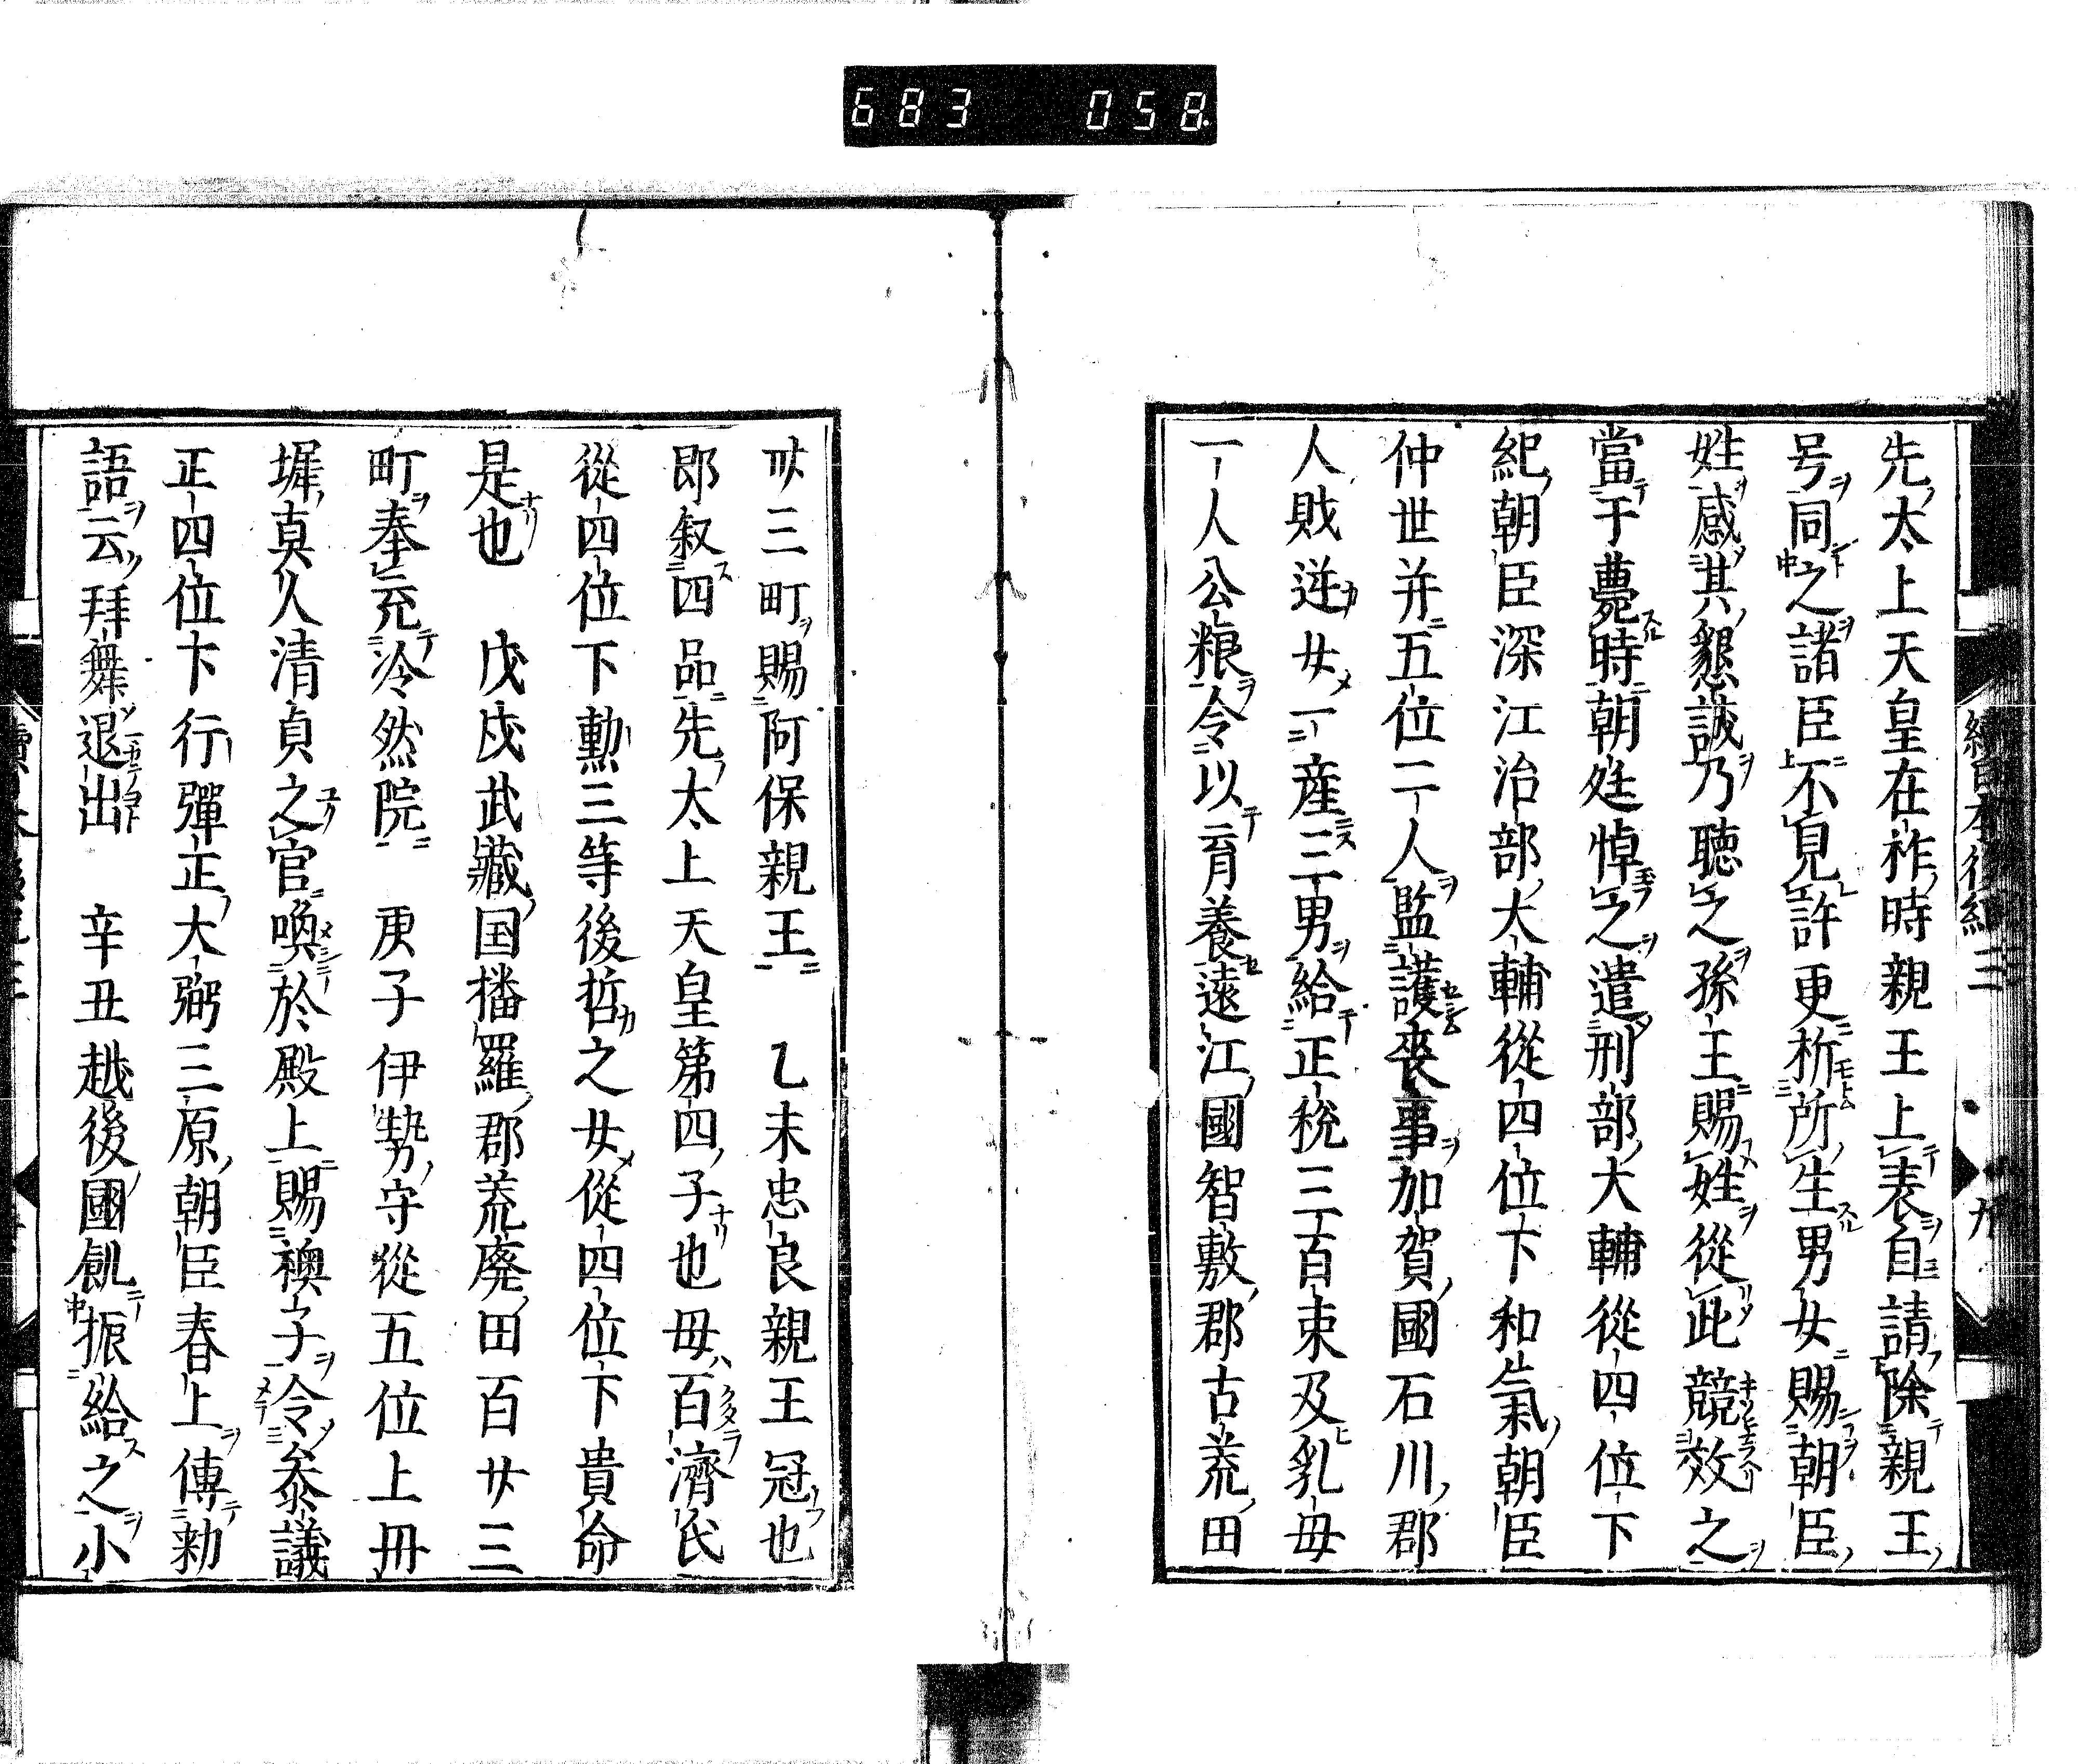 683 058
續日本後紀 三 九
先太上天皇在祚時親王上表自請除親王
号同之諸臣不見許更析所生男女賜朝臣
姓感其懇誠乃聴之孫王賜姓從此競效之
當于薨時朝廷悼之遣刑部大輔從四位下
紀朝臣深江治部大輔從四位下和氣朝臣
仲世并五位二人監護喪事加賀國石川郡
人財逆女一産三男給正税三百束及乳母
一人公粮令以育養遠江國智敷郡古荒田
卌三町賜阿保親王 乙未忠良親王冠也
即叙四品先太上天皇第四子也母百濟氏
從四位下勳三等後哲之女從四位下貴命
是也 戊戌武藏国播羅郡荒廃田百廿三
町奉充冷然院 庚子伊勢守從五位上冊
墀真人清貞之官喚於殿上賜襖子令参議
正四位下行彈正大弼三原朝臣春上傳勅
語云拜舞退出 辛丑越後國飢振給之小